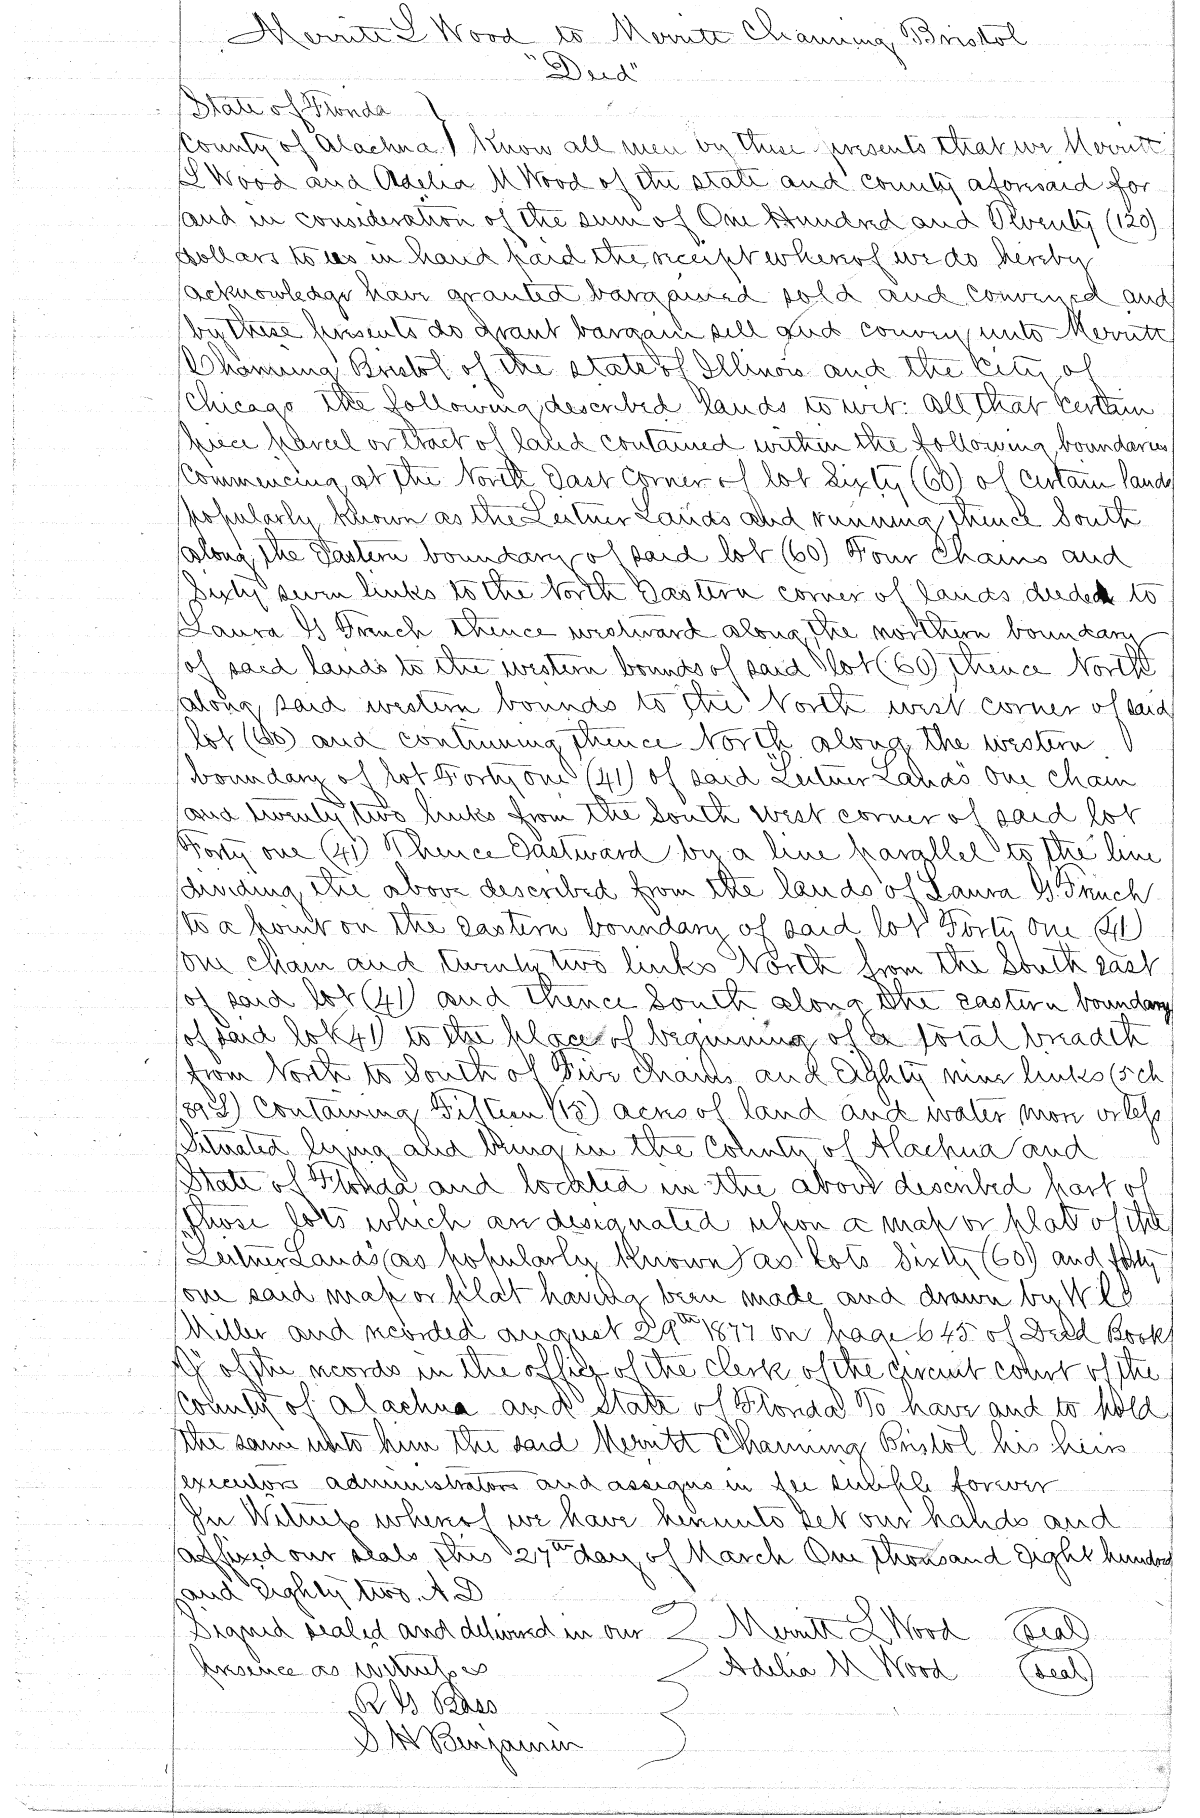 Merritt L Wood to Merritt Channing Bristol
"Deed"
State of Florida }
County of Alachua } Know all men by these presents that we Merritt
L Wood and Adelia M Wood of the state and county aforesaid for
and in consideration of the sum of One Hundred and Twenty (120)
dollars to us in hand paid the receipt whereof we do hereby
acknowledge have granted bargained sold and conveyed and
by these presents do grant bargain sell and convey unto Merritt
Channing Bristol of the state of Illinois and the City of
Chicago The following described lands to wit: all that certain
piece parcel or tract of land contained within the following boundaries
Commencing at the North East Corner of lot Sixty (60) of certain lands
popularly known as the Leitner Lands and running thence South
along the Eastern boundary of said lot (60) Four Chains and
Sixty seven links to the North Eastern corner of lands deeded to
Laura G French thence westward along the northern boundary
of said lands to the western bounds of said lot (60) thence North
along said western bounds to the North west corner of said
lot (60) and continuing thence North along the western
boundary of lot Forty one (41) of said "Leitner Lands" One chain
and twenty two links from the South West corner of said lot
Forty one (41) Thence Eastward by a line parallel to the line
dividing the above described from the lands of Laura G. French
to a point on the eastern boundary of said lot Forty one (41)
one chain and twenty two links North from the South east
of said lot (41) and thence South along the eastern boundary
of said lot (41) to the place of beginning of a total breadth
from North to South of Five chains and Eighty nine links (5 ch
89 L) Containing Fifteen (15) acres of land and water more or less
Situated lying and being in the County of Alachua and
State of Florida and located in the above described part of
those lots which are designated upon a map or plat of the
"Leitner Lands" (as popularly known) as Lots Sixty (60) and forty
one said map or plat having been made and drawn by
Miller and recorded august 29th 1877 on page 645 of Deed Book
of the records in the office of the clerk of the circuit court of the
County of Alachua and State of Florida To have and to hold
the same unto him the said Merritt Channing Bristol his heirs
executors administrators and assigns in fee simple forever
In Witness whereof we have hereunto set our hands and
affixed our seals this 27th day of March One thousand Eight hundred
and Eighty two. A D
Signed sealed and delivered in our } Merritt L Wood (seal)
presence as witnesses Adelia M Wood (seal)
R G Bass
S H Benjamin }